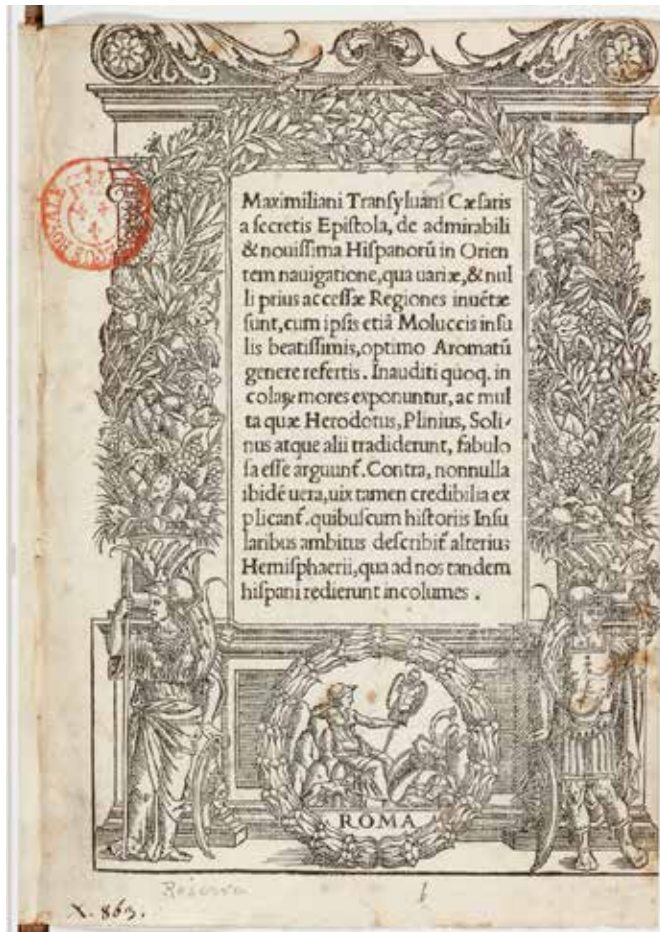 Maximiliani Transyluani Cæsaris
a secretis Epistola, de admirabili
& nouissima Hispanorū in Orien
tem nauigatione, qua uariæ, & nul
li prius accessæ Regiones inuētæ
sunt, cum ipsis etiā Moluccis insu
lis beatissimis, optimo Aromatū
genere refertis. Inauditi quoq. in
colaꝝ mores exponuntur, ac mul
ta quæ Herodotus, Plinius, Soli-
nus atque alii tradiderunt, fabulo
sa esse arguunt̃. Contra, nonnulla
ibidē uera, uix tamen credibilia ex
plicant̃. quibuscum historiis Insu
laribus ambitus describit̃ alterius
Hemisphaerii, qua ad nos tandem
hispani redierunt incolumes .
ROMA
Reserva
X. 863.